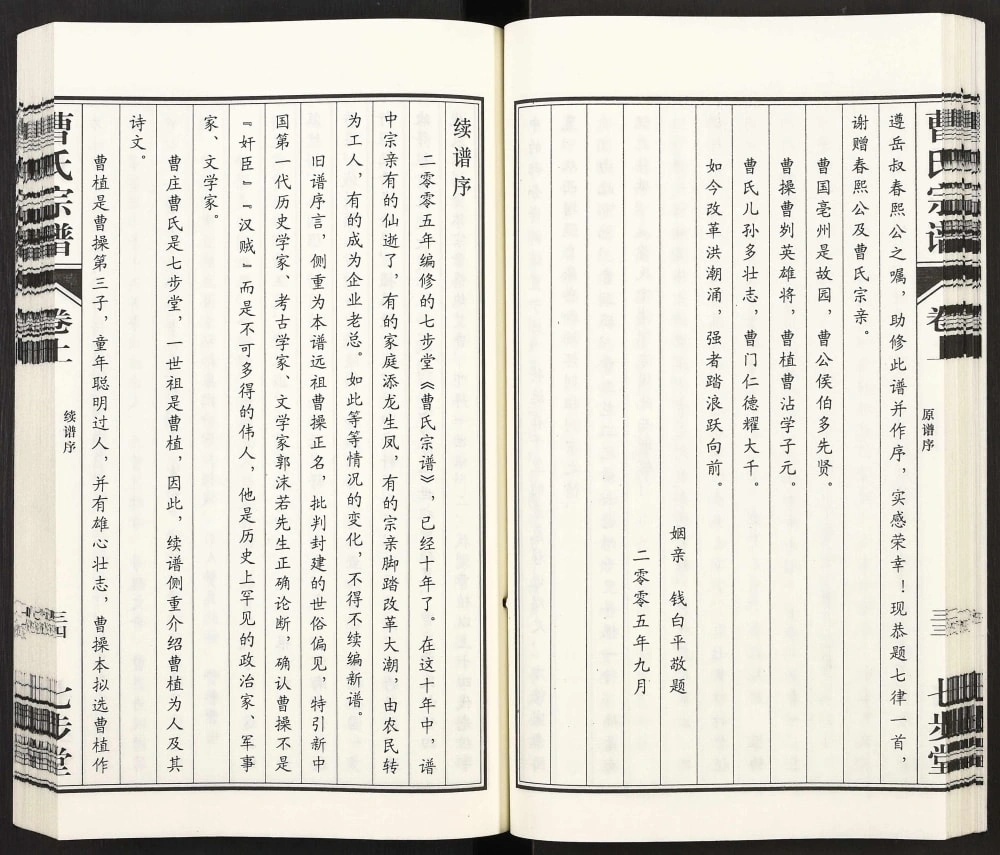 曹氏宗谱
卷
原谱序
三三
七步堂
遵岳叔春熙公之嘱，助修此谱并作序，实感荣幸！现恭题七律一首，
谢赠春熙公及曹氏宗亲。
曹国亳州是故园，曹公侯伯多先贤。
曹操曹刿英雄将，曹植曹沾学子元。
曹氏儿孙多壮志，曹门仁德耀大千。
如今改革洪潮涌，强者踏浪跃向前。
姻亲　钱白平敬题
二零零五年九月
续谱序
二零零五年编修的七步堂《曹氏宗谱》，已经十年了。在这十年中，谱
中宗亲有的仙逝了，有的家庭添龙生凤，有的宗亲脚踏改革大潮，由农民转
为工人，有的成为企业老总。如此等等情况的变化，不得不续编新谱。
旧谱序言，侧重为本谱远祖曹操正名，批判封建的世俗偏见，特引新中
国第一代历史学家、考古学家、文学家郭沫若先生正确论断，确认曹操不是
『奸臣』『汉贼』而是不可多得的伟人，他是历史上罕见的政治家、军事
家、文学家。
曹庄曹氏是七步堂，一世祖是曹植，因此，续谱侧重介绍曹植为人及其
诗文。
曹植是曹操第三子，童年聪明过人，并有雄心壮志，曹操本拟选曹植作
曹氏宗谱
卷
续谱序
三四
七步堂